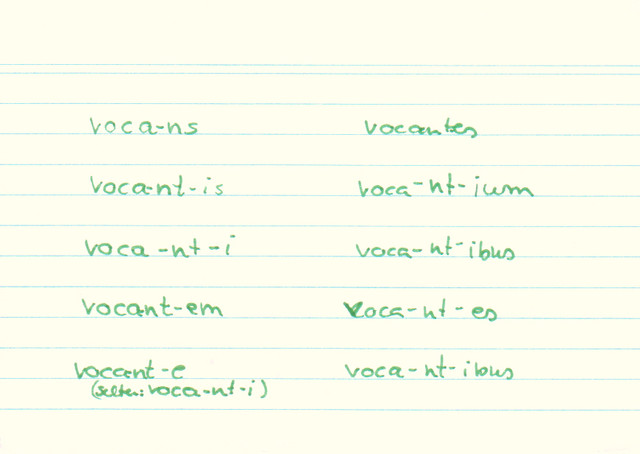 voca-ns vocantes
voca-nt-is voca-nt-ium
voca-nt-i voca-nt-ibus
vocant-em voca-nt-es
vocant-e voca-nt-ibus
(selten: voca-nt-i)